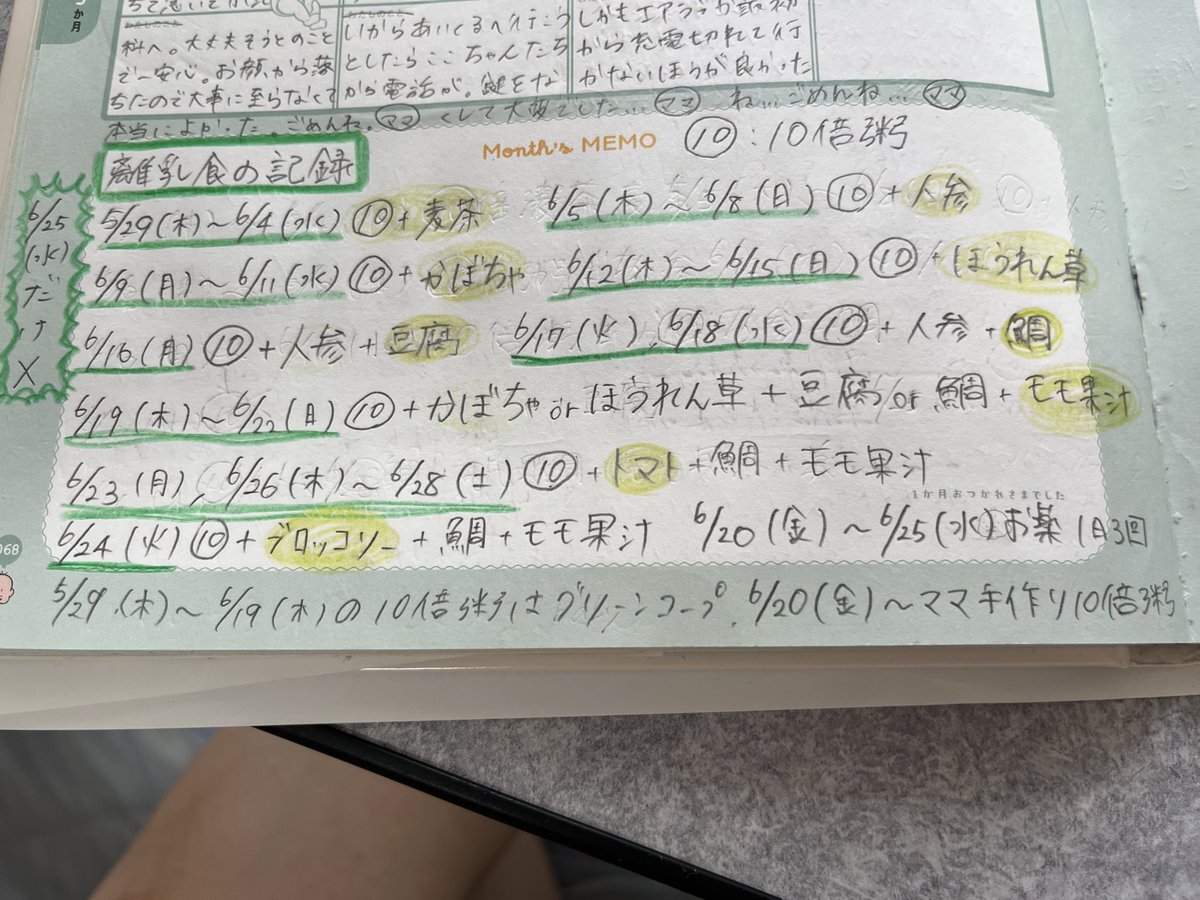 か月
科へ。大丈夫そうとのこと
で一安心。お顔から落
ちたので大事に至らなくて
本当によかった。ごめんね。ママ
いからあいてるへ行こう
としたらここちゃんたち
から電話が。鍵をな
くして大変でした…ママ
しかもエアラブが最初
から充電切れて行
かないほうが良かった
ね…ごめんね…ママ
Month's MEMO
⑩:10倍粥
離乳食の記録
6/25
(水)
だ
け
×
5/29(木)~6/4(水)⑩+麦茶
6/5(木)~6/8(日)⑩+人参
6/9(月)~6/11(水)⑩+かぼちゃ
6/12(木)~6/15(日)⑩+ほうれん草
6/16(月)⑩+人参+豆腐
6/17(火),6/18(水)⑩+人参+鯛
6/19(木)~6/22(日)⑩+かぼちゃorほうれん草+豆腐or鯛+モモ果汁
6/23(月),6/26(木)~6/28(土)⑩+トマト+鯛+モモ果汁
1か月おつかれさまでした
6/24(火)⑩+ブロッコリー+鯛+モモ果汁
6/20(金)~6/25(水)お薬1日3回
068
5/29(木)~6/19(木)の10倍粥はグリーンコープ。6/20(金)~ママ手作り10倍粥